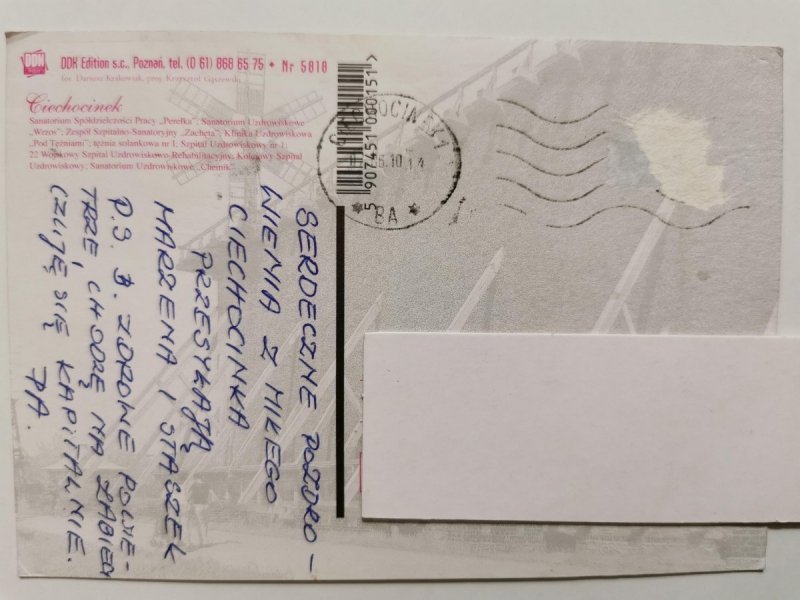 DDK
DDK Edition s.c., Poznań, tel. (0 61) 868 65 75 • Nr 5018
fot. Dariusz Krakowiak, proj. Krzysztof Gąszewski
Ciechocinek
Sanatorium Spółdzielczości Pracy „Perełka”; Sanatorium Uzdrowiskowe
„Wrzos”; Zespół Szpitalno-Sanatoryjny „Zachęta”; Klinika Uzdrowiskowa
„Pod Tężniami”; tężnia solankowa nr 1; Szpital Uzdrowiskowy nr 1;
22 Wojskowy Szpital Uzdrowiskowo-Rehabilitacyjny; Kolejowy Szpital
Uzdrowiskowy; Sanatorium Uzdrowiskowe „Chemik”
5 907451 000151>
CIECHOCINEK 1
BA
SERDECZNE POZDRO-
WIENIA Z MIŁEGO
CIECHOCINKA
PRZESYŁAJĄ
MARZENA I STASZEK
P.S. B. ZDROWE POWIE-
TRZE CHODZĘ NA ZABIEGI
CZUJĘ SIĘ KAPITALNIE.
PA.